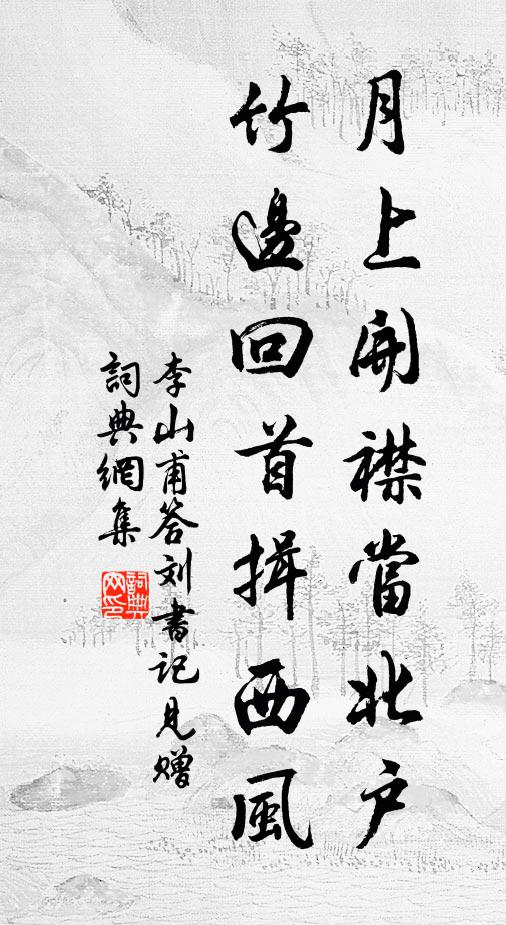 月上開襟當北户
竹邊回首揖西風
李山甫答刘書記見贈
詞典網集
詞典網印